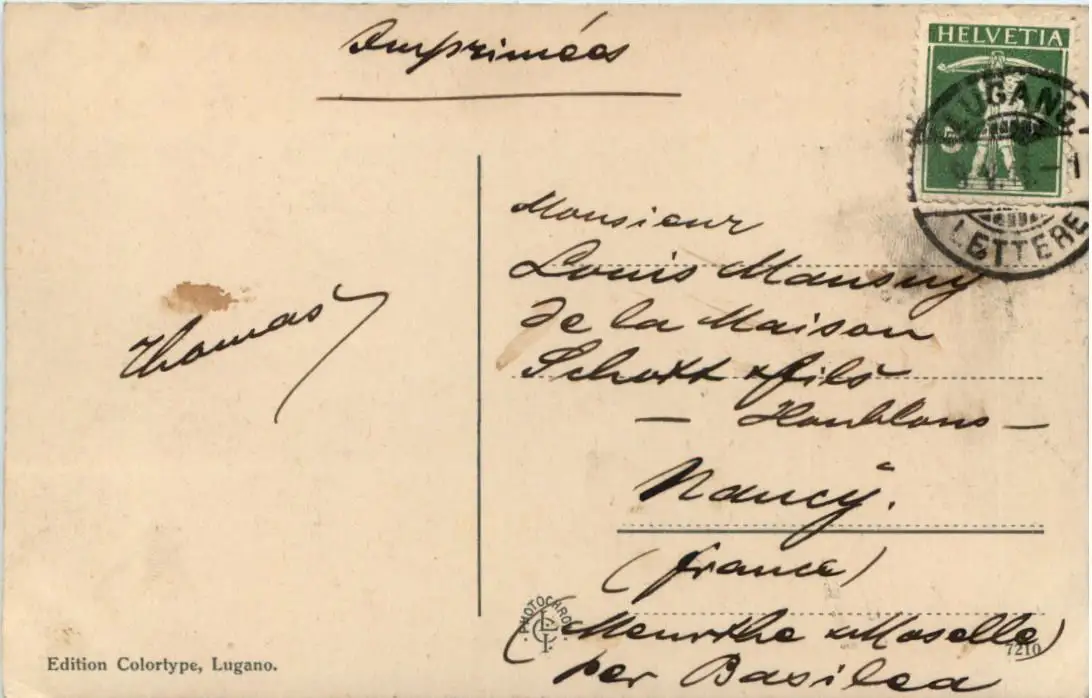 Imprimées
HELVETIA
5
LUGANO
LETTERE
Monsieur
Louis Mansuy
de la Maison
Schott & fils
— Houblons —
Nancy.
(france)
(Meurthe & Moselle)
per Basilea
Thomas
PHOTOCHROM
7210
Edition Colortype, Lugano.